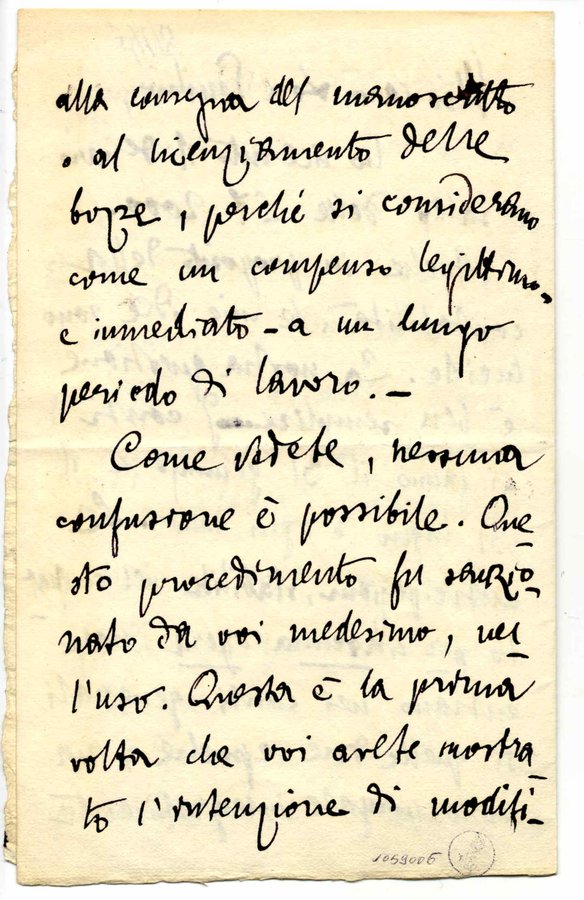 alla consegna del manoscritto
o al licenziamento delle
bozze, perché si considerano
come un compenso legittimo –
e immediato – a un lungo
periodo di lavoro. –
Come vedete, nessuna
confusione è possibile. Que
sto procedimento fu sanzio-
nato da voi medesimo, nel
l'uso. Questa è la prima
volta che voi avete mostra
to l'intenzione di modifi-
1059006